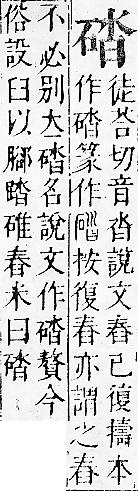 徒荅切音沓說文舂已復擣本
作篆作按復舂亦謂之舂
不必别立名說文作贅今
俗設臼以腳踏碓舂米曰